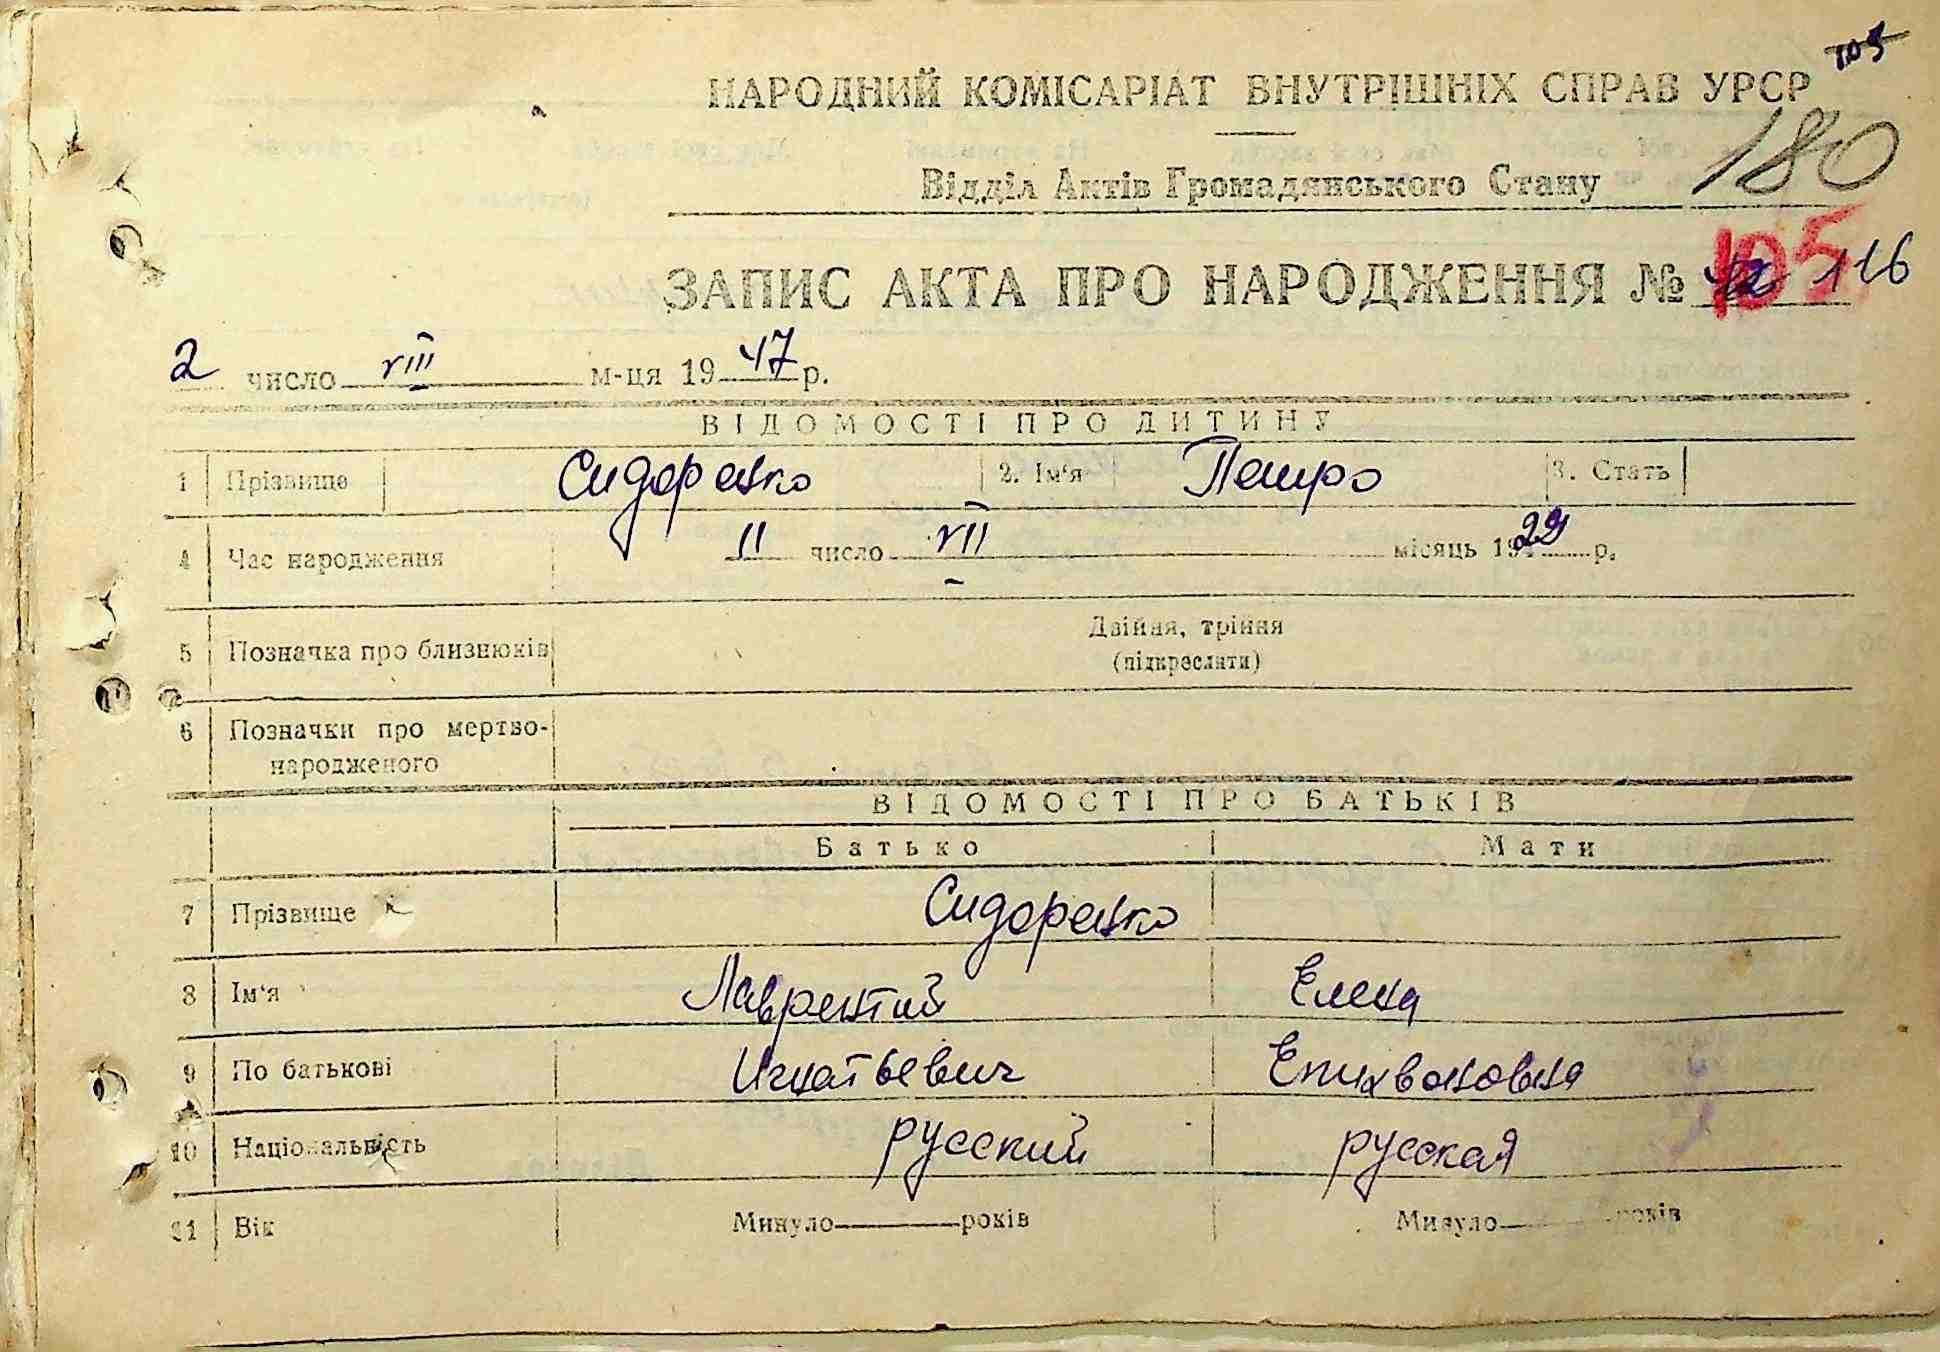 105
НАРОДНИЙ КОМІСАРІАТ ВНУТРІШНІХ СПРАВ УРСР
180
Відділ Актів Громадянського Стану
105
ЗАПИС АКТА ПРО НАРОДЖЕННЯ № 116
2 число VIII м-ця 1947 р.
ВІДОМОСТІ ПРО ДИТИНУ
1 Прізвище Сидоренко 2. Ім'я Петро 3. Стать
4 Час народження 11 число VII місяць 1929 р.
5 Позначка про близнюків Двійня, трійня
(підкреслити)
6 Позначки про мертво-
народженого
ВІДОМОСТІ ПРО БАТЬКІВ
Батько Мати
7 Прізвище Сидоренко
8 Ім'я Лаврентий Елена
9 По батькові Игнатьевич Епихвановна
10 Національність русский русская
11 Вік Минуло років Минуло років